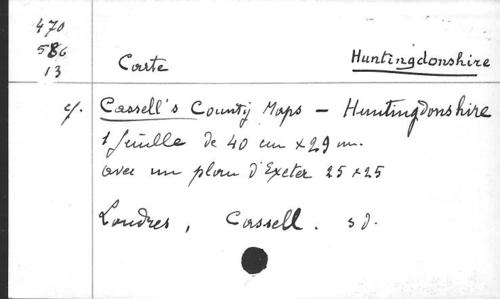 470
586
13
Carte
Huntingdonshire
cf. Cassell's County Maps – Huntingdonshire
1 feuille de 40 cm x 29 m.
avec un plan d'Exeter 25 x 25
Londres, Cassell. s d.